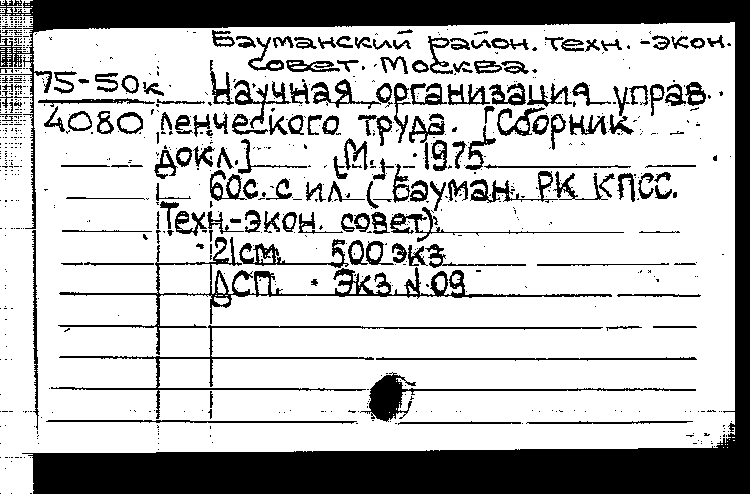 Бауманский район. техн.-экон.
совет. Москва.
75-50к Научная организация управ-
4080 ленческого труда. [Сборник
докл.] [М.], 1975
60с. с ил. (Бауман. РК КПСС.
Техн.-экон. совет).
21см. 500 экз
ДСП. Экз. N 09